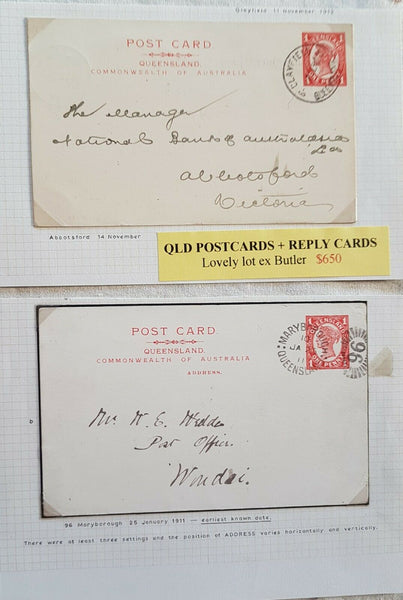 Greyfield 11 november 1910
POST CARD
QUEENSLAND.
COMMONWEALTH OF AUSTRALIA
The Manager
National Bank of Australasia
Ld
Abbotsford
Victoria
Abbotsford 14 November
QLD POSTCARDS + REPLY CARDS
Lovely lot ex Butler $650
POST CARD.
QUEENSLAND.
COMMONWEALTH OF AUSTRALIA
ADDRESS.
MARYBO
QUEENSLA
JA
11
QUEENSLAND
ONE PENNY
96
Mr. W. E.
Post Office.
Wondai.
96 Maryborough 25 January 1911 — earliest known date.
There were at least three settings and the position of ADDRESS varies horizontally and vertically.